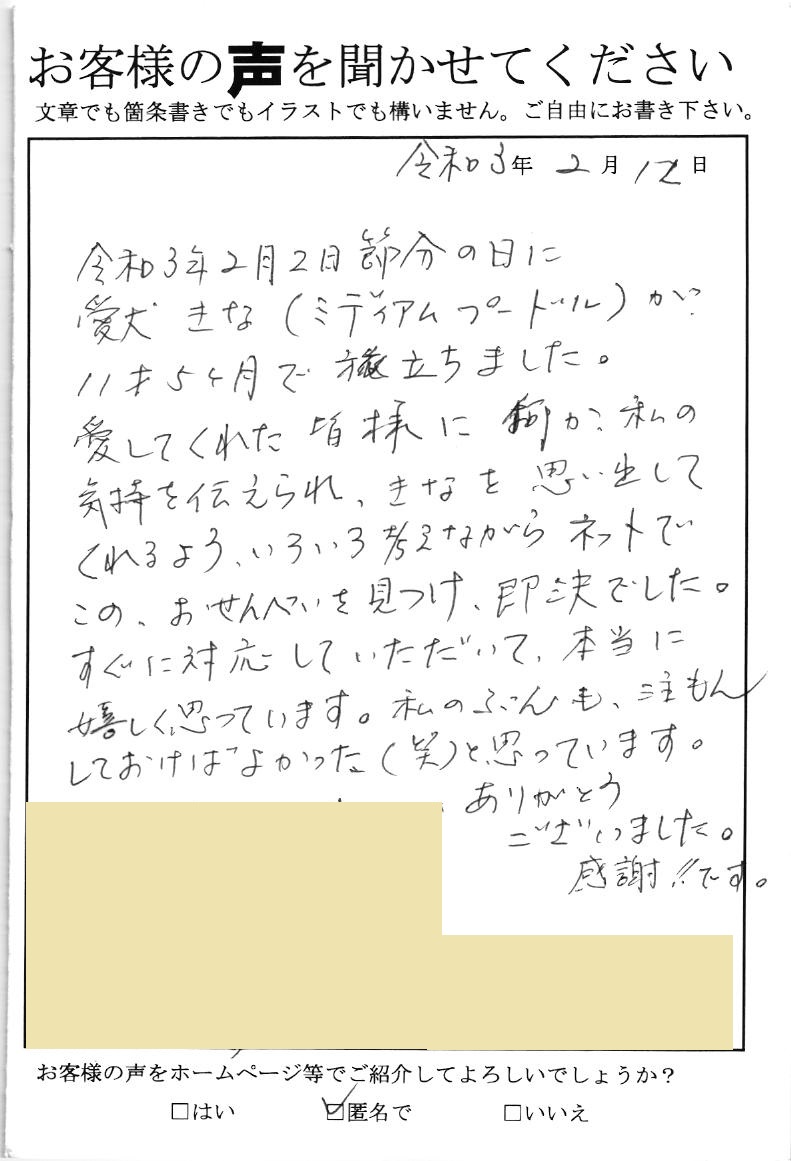 お客様の声を聞かせてください
文章でも箇条書きでもイラストでも構いません。ご自由にお書き下さい。
令和3年 2月 12日
令和3年2月2日 節分の日に
愛犬 きな（ミディアムプードル）が
11才5ヶ月で 旅立ちました。
愛してくれた 皆様に 何か 私の
気持を伝えられ、きなを 思い出して
くれるよう、いろいろ考えながら ネットで
この、おせんべいを見つけ、即決でした。
すぐに対応していただいて、本当に
嬉しく思っています。私のぶんも、注もん
しておけばよかった（笑）と思っています。
ありがとう
ございました。
感謝!!です。
お客様の声をホームページ等でご紹介してよろしいでしょうか？
□はい ☑匿名で □いいえ